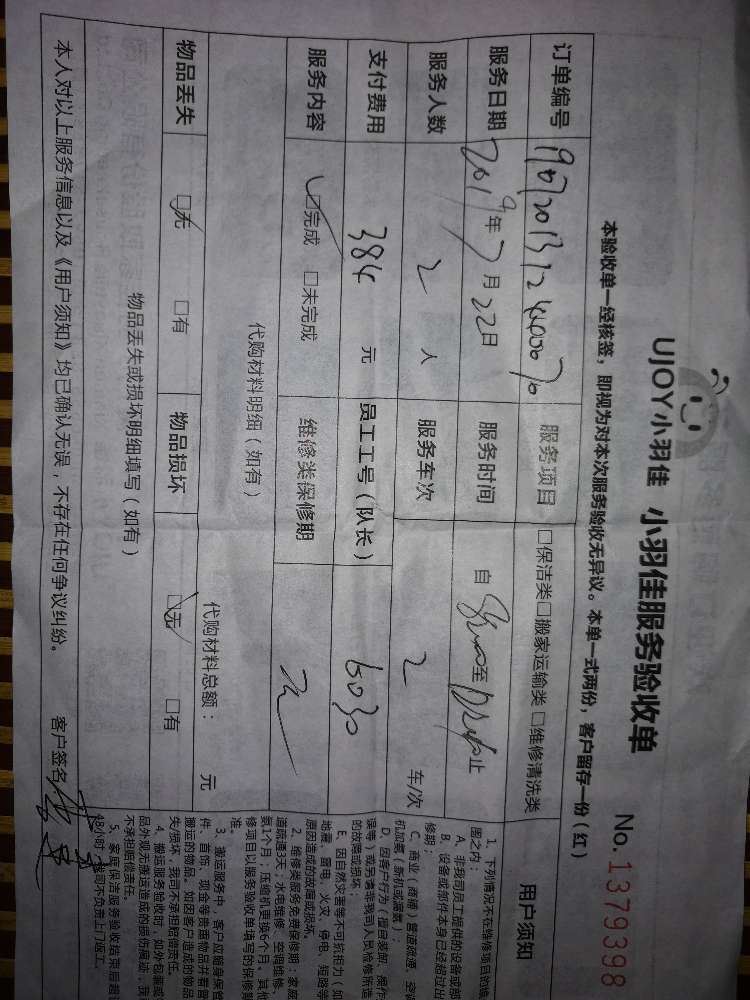 UJOY小羽佳 小羽佳服务验收单 No. 1379398
本验收单一经核签，即视为对本次服务验收无异议。本单一式两份，客户留存一份（红）
订单编号 服务项目 □保洁类□搬家运输类□维修清洗类
服务日期 2019年7月22日 服务时间 自 至 止
服务人数 2 人 服务车次 2 车/次
支付费用 384 元 员工工号（队长） 6030
服务内容 ☑完成 □未完成 维修类保修期 无
代购材料明细（如有） 代购材料总额： 元
物品丢失 ☑无 □有 物品损坏 ☑无 □有
物品丢失或损坏明细填写（如有）
本人对以上服务信息以及《用户须知》均已确认无误，不存在任何争议纠纷。 客户签名
用户须知
1、下列情况不在维修项目的
围之内：
A、非我司员工提供的设备或部
B、设备或部件本身已经超过出
修期；
C、商业（商铺）管道疏通、空
机加氨（新机或漏氨）；
D、因客户行为（擅自装卸、操作
误等）或另请非我司人员检修所造
的故障或损坏；
E、因自然灾害等不可抗拒力（如
地震、雷电、火灾、停电、短路等
原因造成的故障或损坏。
2、维修类服务免费保修期：家庭
道疏通3天；水电维修、空调维修、
氨1个月；压缩机更换6个月。其他
修项目以服务验收单填写的保修期
准。
3、搬运服务中，客户应随身保管
件、首饰、现金等贵重物品并看管
搬运的物品。如因客户造成的物品
失/损坏，我司不承担赔偿责任。
4、搬运服务验收时，如外包装或
品外观无搬运造成的损伤痕迹，我
不承担赔偿责任。
5、家庭保洁服务验收结束后超
48小时，我司不负责上门返工。